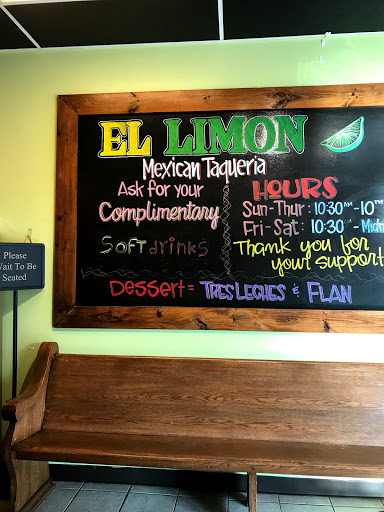 EL LIMON
Mexican Taqueria
Ask for your
Complimentary
Soft drinks
HOURS
Sun-Thur: 10:30AM-10PM
Fri-Sat: 10:30
Thank you for
your support
Dessert = TRES LECHES & FLAN
Please
Wait To Be
Seated